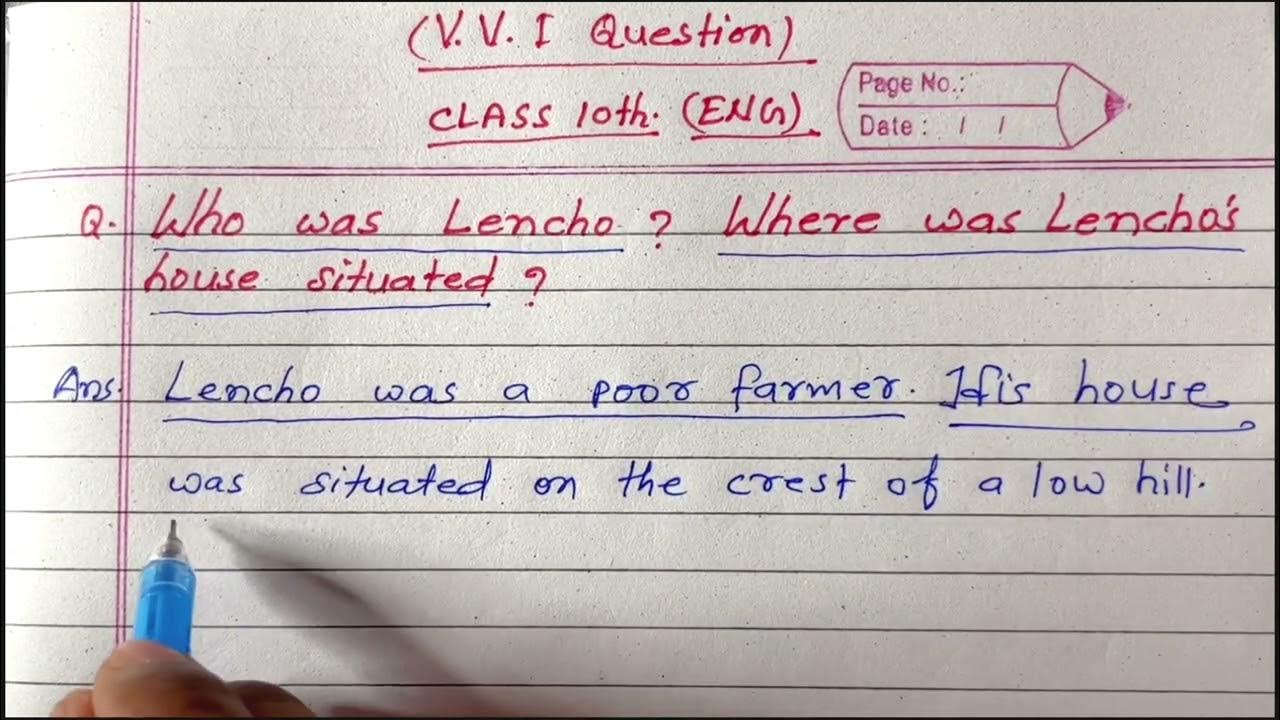 (V. V. I Question)
CLASS 10th. (ENG)
Page No.:
Date : / /
Q. Who was Lencho ? Where was Lencho's
house situated ?
Ans. Lencho was a poor farmer. His house
was situated on the crest of a low hill.